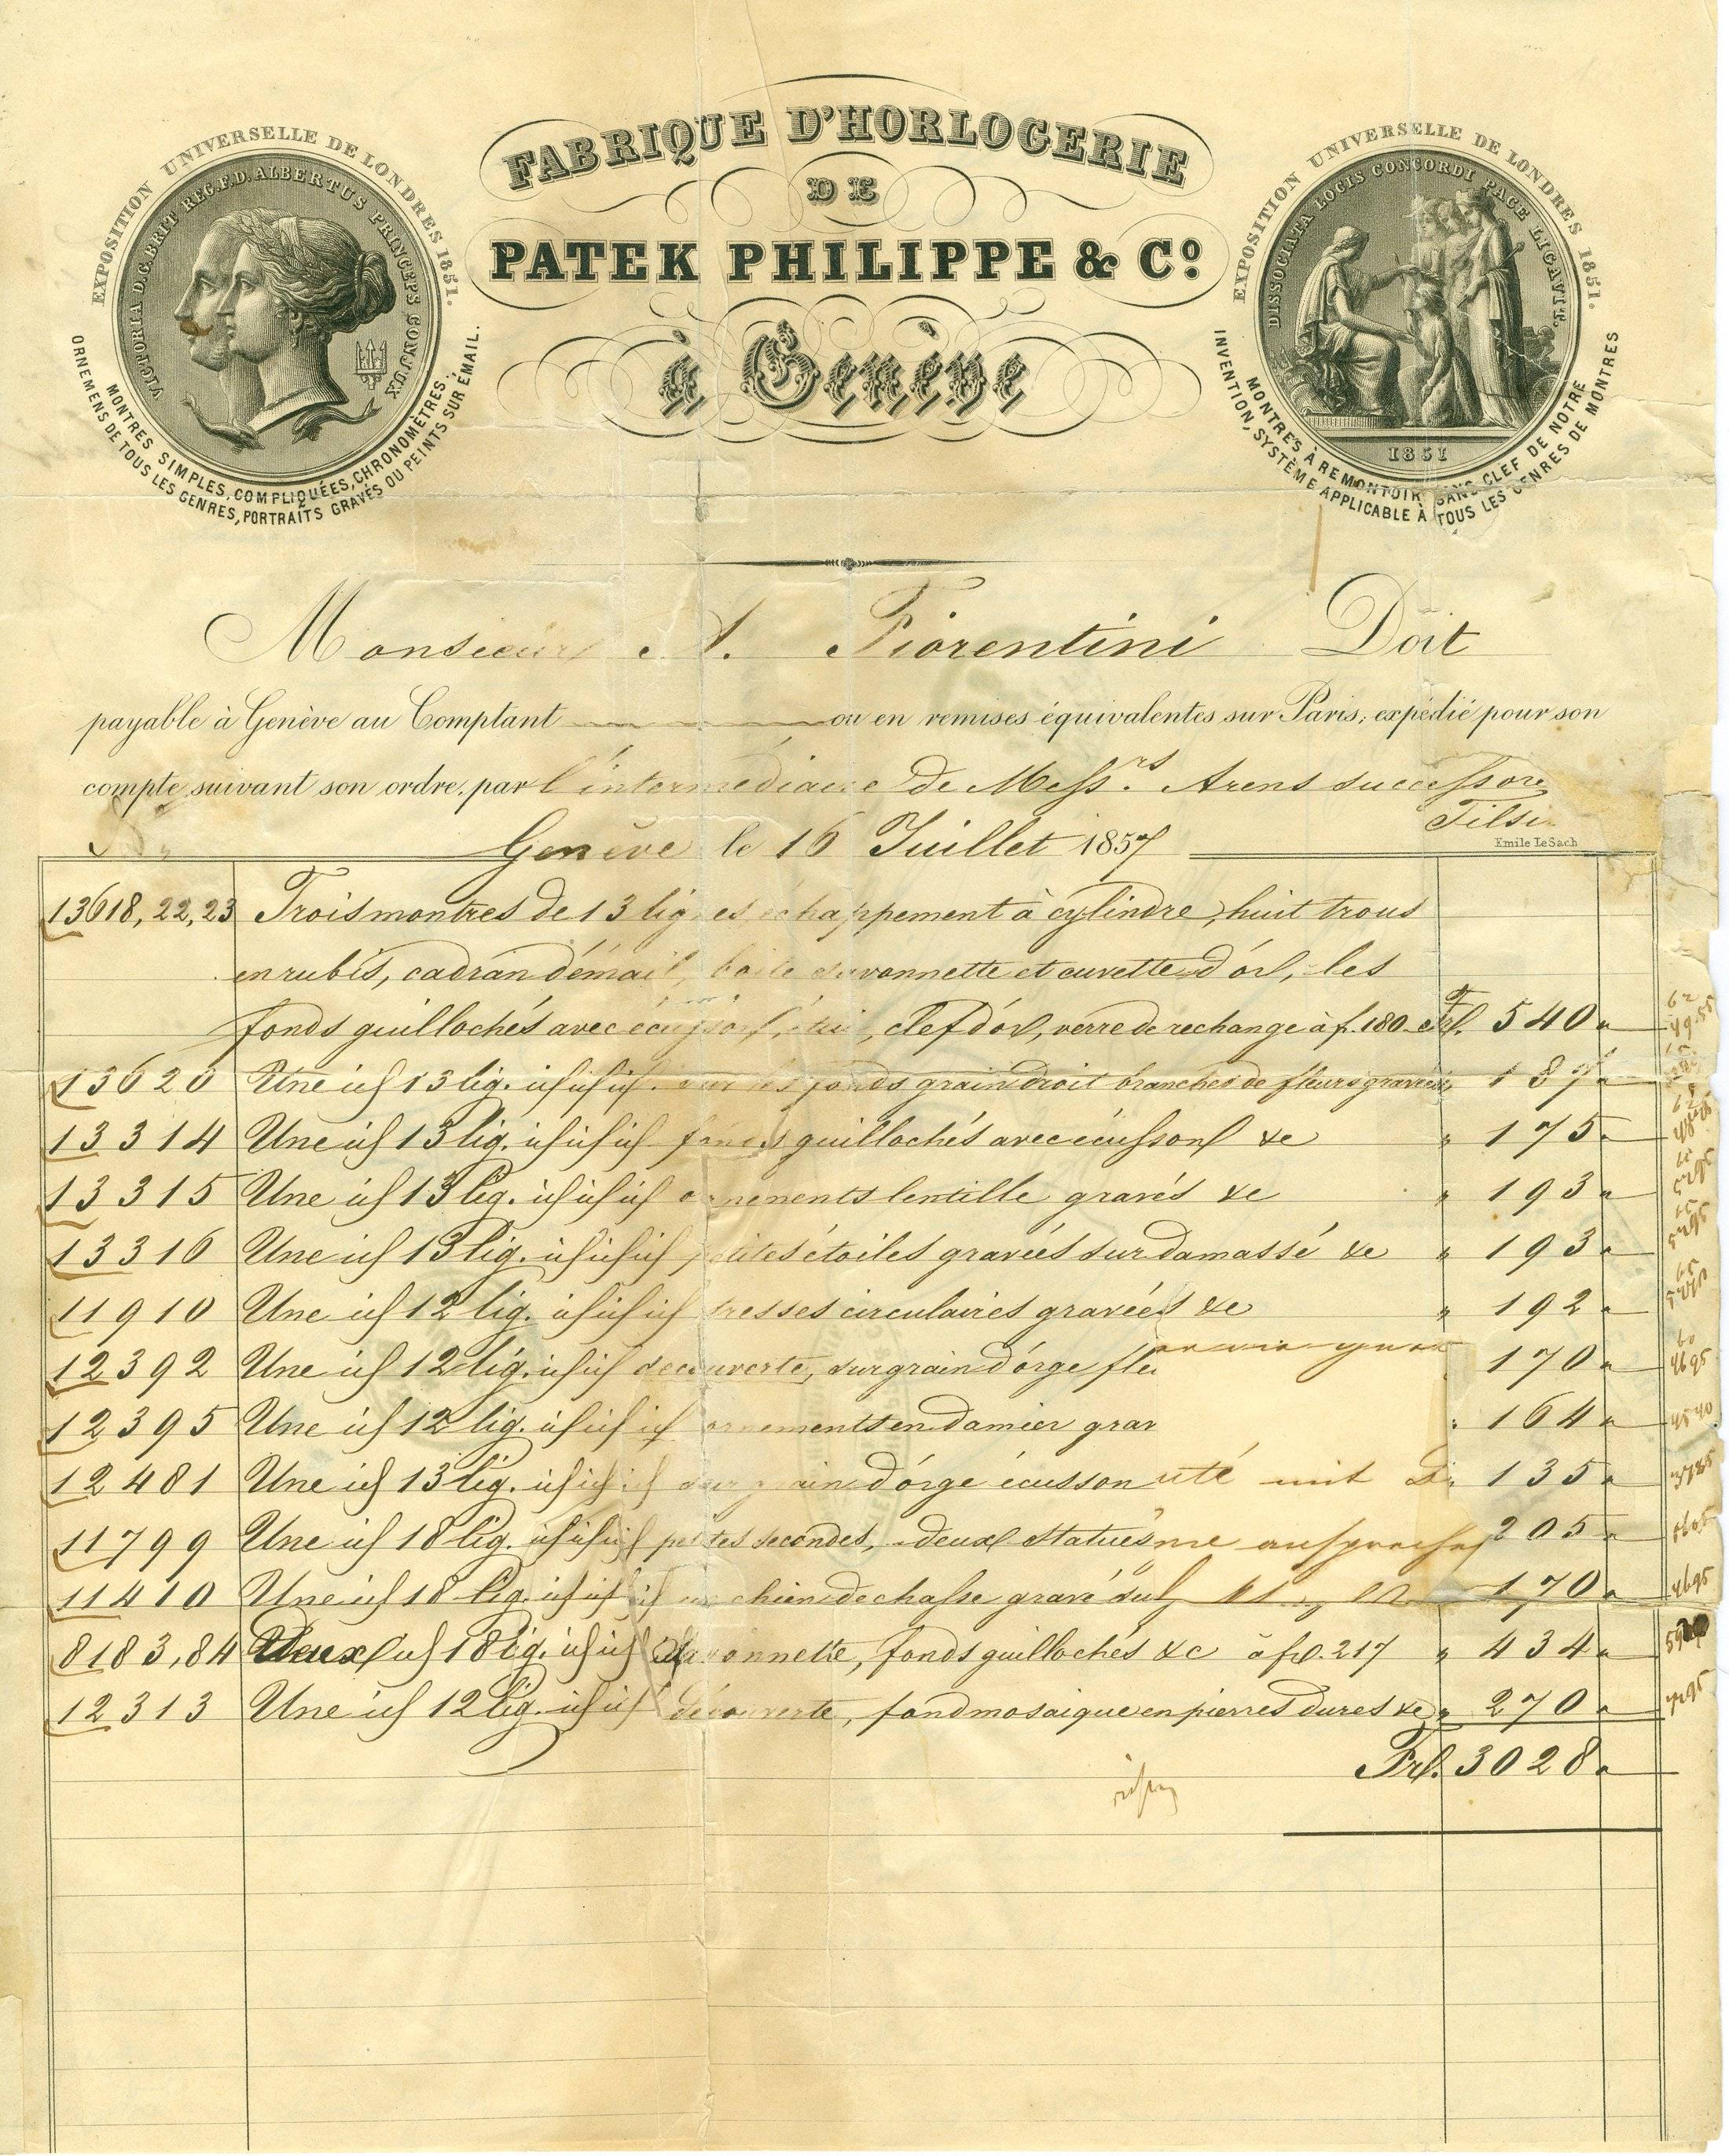 FABRIQUE D'HORLOGERIE
DE
PATEK PHILIPPE & Cº
à Genève
EXPOSITION UNIVERSELLE DE LONDRES 1851.
VICTORIA D.G.BRIT REG.F.D. ALBERTUS PRINCEPS CONJUX
MONTRES SIMPLES, COMPLIQUÉES, CHRONOMÈTRES.
ORNEMENS DE TOUS LES GENRES, PORTRAITS GRAVÉS OU PEINTS SUR ÉMAIL.
EXPOSITION UNIVERSELLE DE LONDRES 1851.
DISSOCIATA LOCIS CONCORDI PACE LIGAVIT.
1851
MONTRES À REMONTOIR SANS CLEF DE NOTRE
INVENTION, SYSTÈME APPLICABLE À TOUS LES GENRES DE MONTRES
Monsieur A. Fiorentini Doit
payable à Genève au Comptant ou en remises équivalentes sur Paris, expédié pour son
compte suivant son ordre, par l'intermédiaire de Messrs. Arens successore
Tilsi
Genève le 16 Juillet 1857
Emile LeSach
13618, 22, 23 Trois montres de 13 lignes échappement à cylindre, huit trous
en rubis, cadran d'émail, boite savonnette et cuvette d'or, les
fonds guillochés avec écusson, étui, clef d'or, verre de rechange à f. 180 Fr. 540 "
13620 Une id 13 lig. id id id sur les fonds grain droit branches de fleurs gravées " 187 "
13314 Une id 13 lig. id id id fonds guillochés avec écusson &c " 175 "
13315 Une id 13 lig. id id id ornements lentille gravés &c " 193 "
13316 Une id 13 lig. id id id petites étoiles gravées sur damassé &c " 193 "
11910 Une id 12 lig. id id id tresses circulaires gravées &c " 192 "
12392 Une id 12 lig. id id découverte, sur grain d'orge fleu 170 "
12395 Une id 12 lig. id id id ornements en damier grav " 164 "
12481 Une id 13 lig. id id id sur grain d'orge écusson 135 "
11799 Une id 18 lig. id id id petites secondes, deux statues 205 "
11410 Une id 18 lig. id id id un chien de chasse gravé sur 170 "
8183, 84 Deux id 18 lig. id id savonnette, fonds guillochés &c à fr. 217 " 434 "
12313 Une id 12 lig. id id découverte, fond mosaïque en pierres dures &c " 270 "
Fr. 3028 "